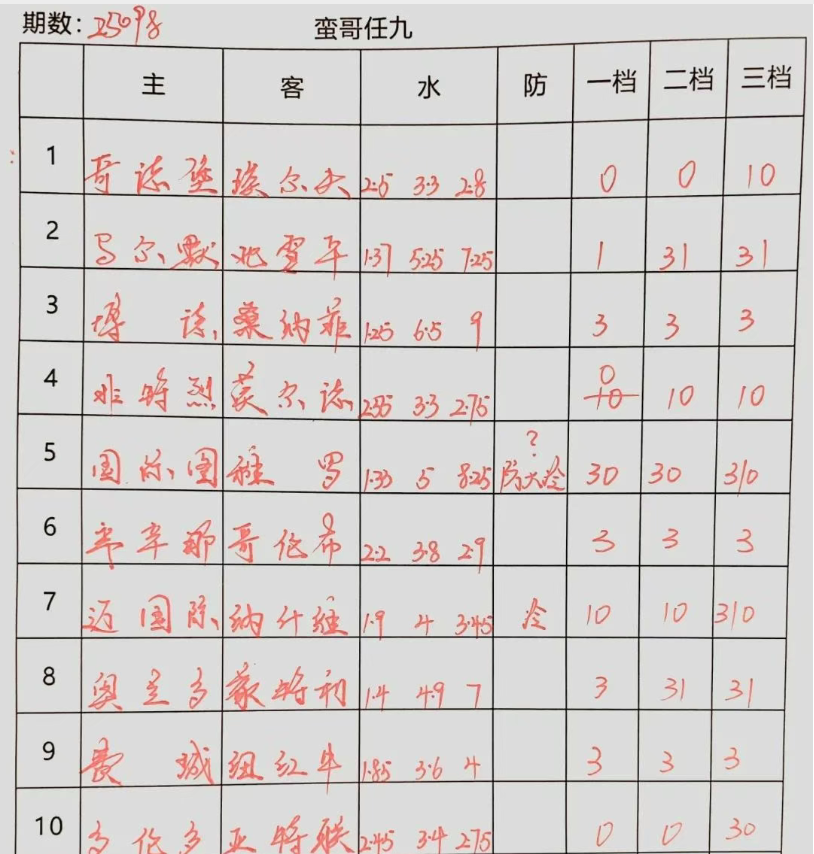 期数: 25098 蛮哥任九
主 客 水 防 一档 二档 三档
1 哥德堡 埃尔夫 2.5 3.3 2.8 0 0 10
2 马尔默 北雪平 1.37 5.25 7.25 1 31 31
3 博德 桑纳菲 1.25 6.5 9 3 3 3
4 非特烈 莫尔德 3.3 2.75 0 10 10 10
?
5 国际图 雅罗 1.33 5 8.25 防大冷 30 30 310
6 辛辛那 哥伦布 2.2 3.8 2.9 3 3 3
7 迈国际 纳什维 1.9 4 3.45 冷 10 10 310
8 奥兰多 蒙特利 1.4 4.9 7 3 31 31
9 费城 纽红牛 1.85 3.6 4 3 3 3
10 多伦多 亚特联 2.45 3.4 2.75 0 0 30